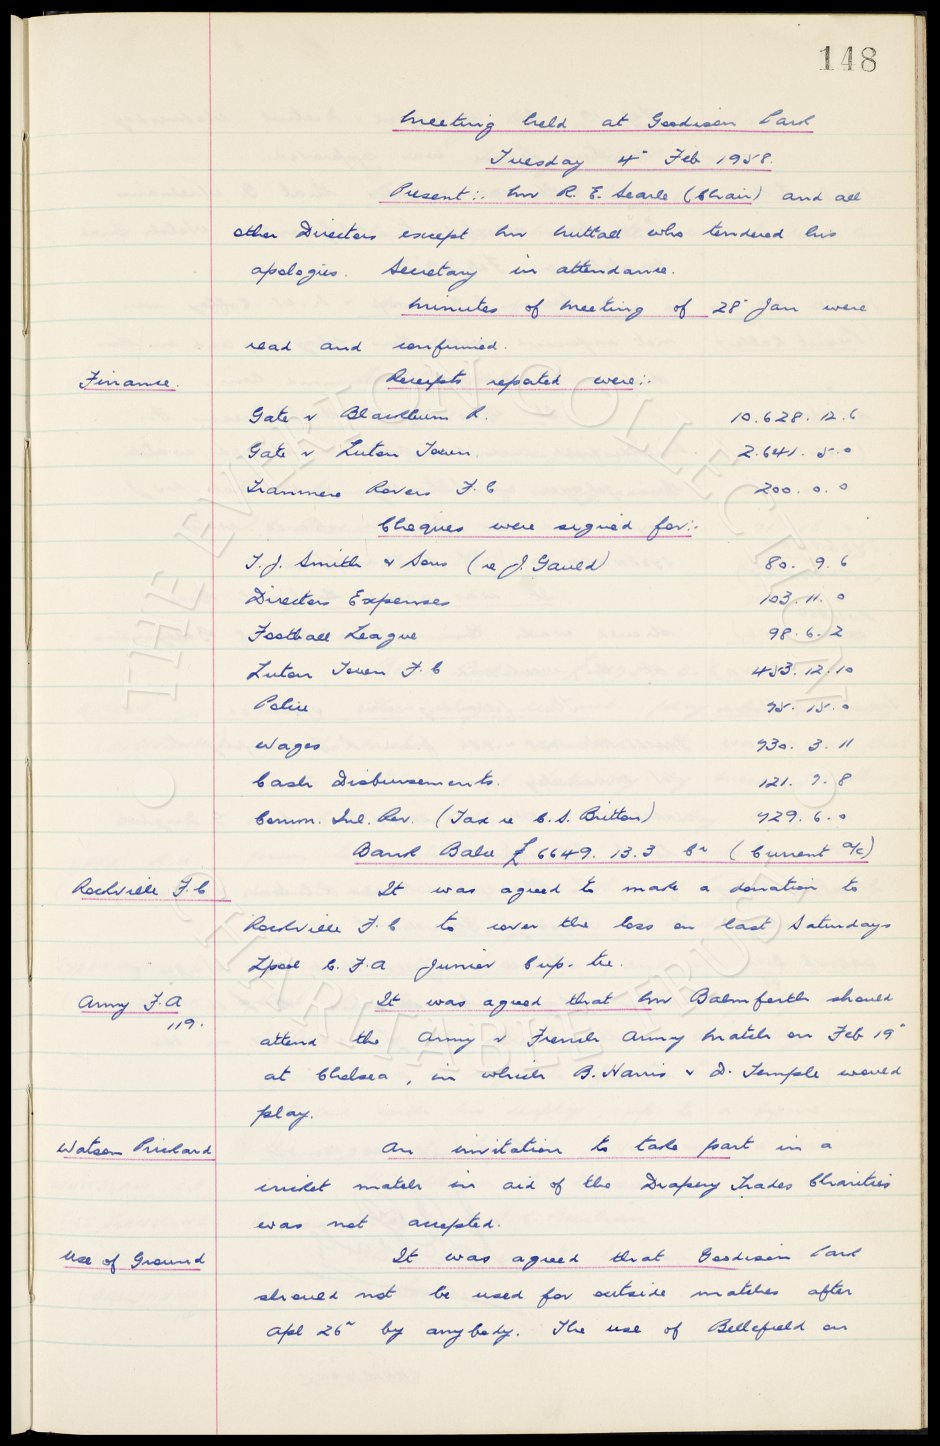 148
Meeting held at Goodison Park
Tuesday 4" Feb 1958.
Present:. Mr R. E. Searle (Chair) and all
other Directors except Mr Nuttall who tendered his
apologies. Secretary in attendance.
Minutes of Meeting of 28" Jan were
read and confirmed.
Finance. Receipts reported were:.
Gate v Blackburn R. 10.628.12.6
Gate v Luton Town. 2.641.5.0
Tranmere Rovers F.C 200.0.0
Cheques were signed for:.
T.J. Smith & Sons (re J. Gauld) 80.9.6
Directors Expenses 103.11.0
Football League 98.6.2
Luton Town F.C 453.12.10
Police 95.15.0
Wages 930.3.11
Cash Disbursements. 121.9.8
Comm. Inl. Rev. (Tax re C.S. Britton) 729.6.0
Bank Balce £6649.13.3 Cr (Current a/c)
Rockville F.C It was agreed to make a donation to
Rockville F.C to cover the loss on last Saturdays
Lpool C.F.A Junior Cup-tie.
Army F.A It was agreed that Mr Balmforth should
119.
attend the Army v French Army Match on Feb 19"
at Chelsea, in which B. Harris & D. Temple would
play.
Watson Prickard An invitation to take part in a
cricket match in aid of the Drapery Trades Charities
was not accepted.
Use of Ground It was agreed that Goodison Park
should not be used for outside matches after
Apl 26" by anybody. The use of Bellefield on
© THE EVERTON COLLECTION
CHARITABLE TRUST